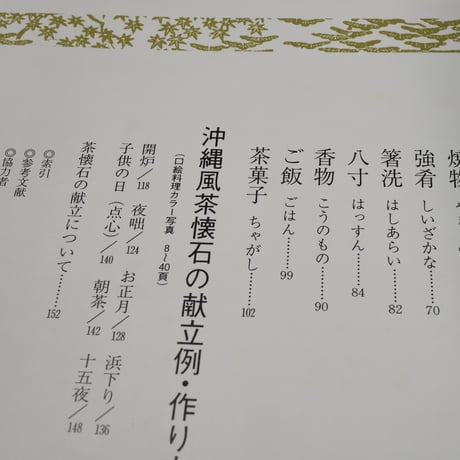 焼物
強肴 しいざかな……70
箸洗 はしあらい……82
八寸 はっすん……84
香物 こうのもの……90
ご飯 ごはん……99
茶菓子 ちゃがし……102
沖縄風茶懐石の献立例・作り
(口絵料理カラー写真 8〜40頁)
開炉/118 夜咄/124 お正月/128 浜下り/136
子供の日(点心)/140 朝茶/142 十五夜/148
茶懐石の献立について……152
◎索引
◎参考文献
◎協力者